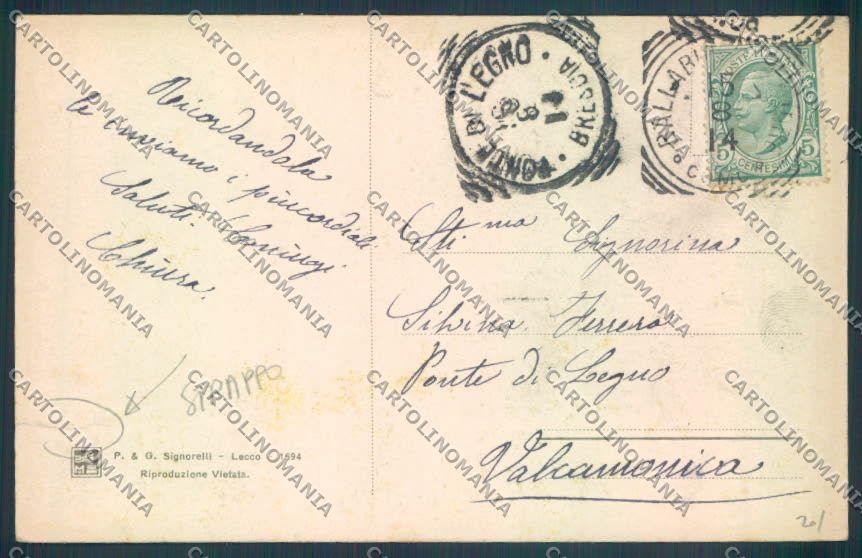 Ricordandola
le inviamo i più cordiali
Saluti. Coniugi
Chiusa.
STRAPPO
P. & G. Signorelli - Lecco 1694
Riproduzione Vietata.
PONTE DI LEGNO • BRESCIA
14
BALLABIO
14
POSTE ITALIANE
5 CENTESIMI 5
Sti.ma Signorina
Silvina Ferrero
Ponte di Legno
Valcamonica
20/
CARTOLINOMANIA